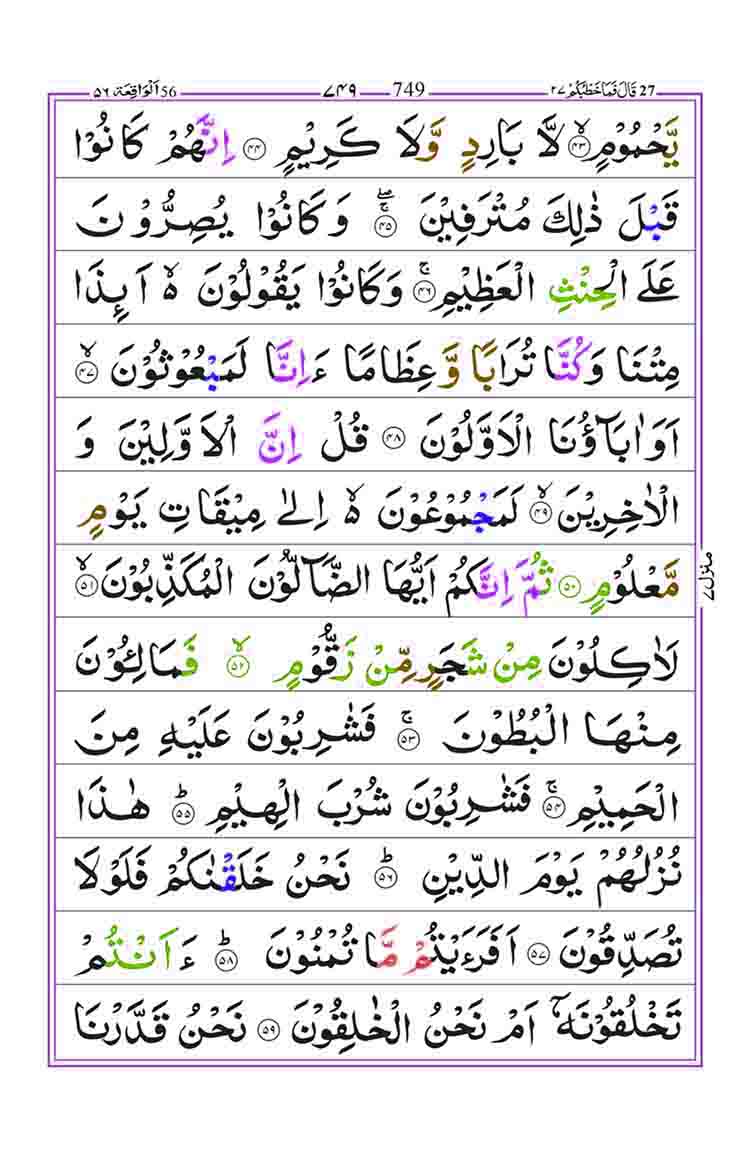 ٥٦ اَلْوَاقِعَة 56 ٧٤٩ 749 ٢٧ قَالَ فَمَا خَطْبُكُمْ 27
يَّحْمُوْمٍ ۙ‏﴿۴۳﴾ لَّا بَارِدٍ وَّلَا كَرِيْمٍ ﴿۴۴﴾ اِنَّهُمْ كَانُوْا
قَبْلَ ذٰلِكَ مُتْرَفِيْنَ ﴿۴۵﴾ۚۖ وَكَانُوْا يُصِرُّوْنَ
عَلَى الْحِنْثِ الْعَظِيْمِ ﴿۴۶﴾ۚ وَكَانُوْا يَقُوْلُوْنَ ۙ اَئِذَا
مِتْنَا وَكُنَّا تُرَابًا وَّعِظَامًا ءَاِنَّا لَمَبْعُوْثُوْنَ ﴿۴۷﴾ۙ
اَوَاٰبَآؤُنَا الْاَوَّلُوْنَ ﴿۴۸﴾ قُلْ اِنَّ الْاَوَّلِيْنَ وَ
الْاٰخِرِيْنَ ﴿۴۹﴾ۙ لَمَجْمُوْعُوْنَ ۙ اِلٰى مِيْقَاتِ يَوْمٍ
مَّعْلُوْمٍ ﴿۵۰﴾ ثُمَّ اِنَّكُمْ اَيُّهَا الضَّآلُّوْنَ الْمُكَذِّبُوْنَ ﴿۵۱﴾ۙ
لَاٰكِلُوْنَ مِنْ شَجَرٍ مِّنْ زَقُّوْمٍ ﴿۵۲﴾ۙ فَمَالِئُوْنَ
مِنْهَا الْبُطُوْنَ ﴿۵۳﴾ۚ فَشٰرِبُوْنَ عَلَيْهِ مِنَ
الْحَمِيْمِ ﴿۵۴﴾ۚ فَشٰرِبُوْنَ شُرْبَ الْهِيْمِ ﴿۵۵﴾ؕ هٰذَا
نُزُلُهُمْ يَوْمَ الدِّيْنِ ﴿۵۶﴾ؕ نَحْنُ خَلَقْنٰكُمْ فَلَوْلَا
تُصَدِّقُوْنَ ﴿۵۷﴾ اَفَرَءَيْتُمْ مَّا تُمْنُوْنَ ﴿۵۸﴾ؕ ءَاَنْتُمْ
تَخْلُقُوْنَهٗۤ اَمْ نَحْنُ الْخٰلِقُوْنَ ﴿۵۹﴾ نَحْنُ قَدَّرْنَا
منزل ٧